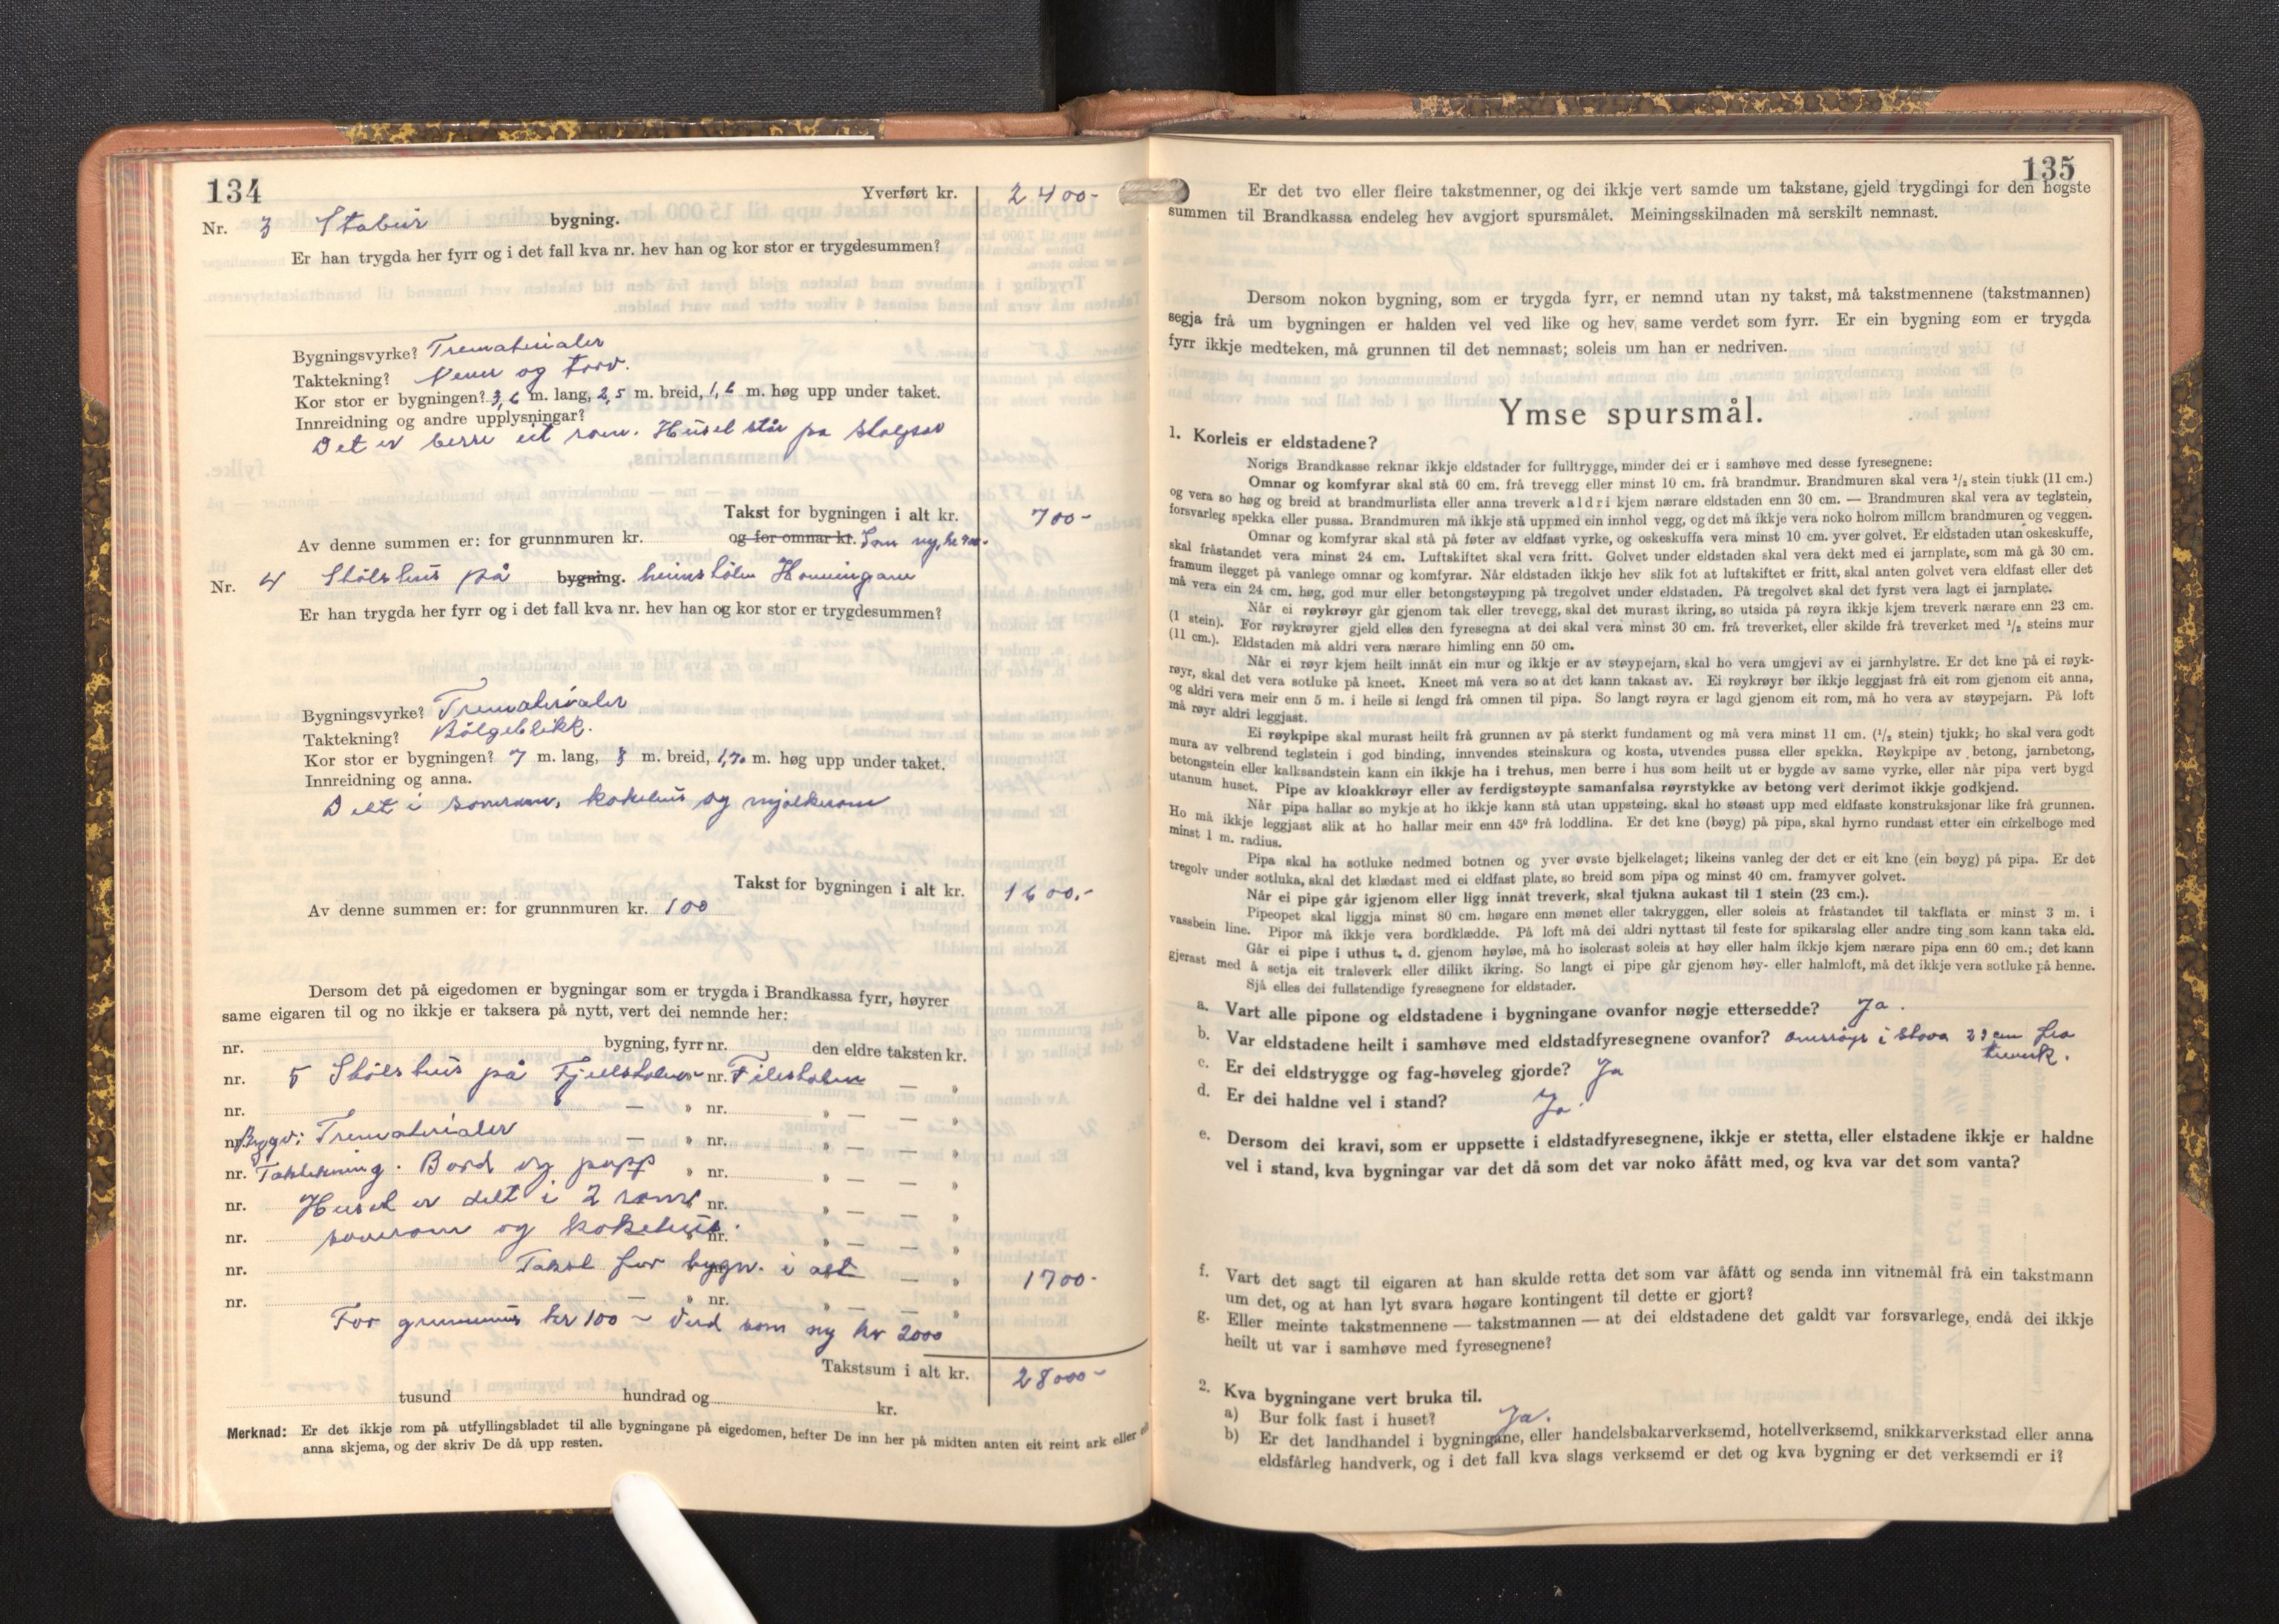 134
Yverført kr. 2400-
Nr. 3 Stabur bygning.
Er han trygda her fyrr og i det fall kva nr. hev han og kor stor er trygdesummen?
Bygningsvyrke? Trematerialer
Taktekning? Never og torv.
Kor stor er bygningen? 3,6 m. lang, 2,5 m. breid, 1,6 m. høg upp under taket.
Innreidning og andre upplysningar?
Det er berre eit rom. Huset står på stolpar
Takst for bygningen i alt kr. 700-
Av denne summen er: for grunnmuren kr. og for omnar kr. Som ny, kr
Nr. 4 Stølshus på bygning. heimstølen Honningane
Er han trygda her fyrr og i det fall kva nr. hev han og kor stor er trygdesummen?
Bygningsvyrke? Trematerialer
Taktekning? Bølgeblikk.
Kor stor er bygningen? 7 m. lang, 3 m. breid, 1,70 m. høg upp under taket.
Innreidning og anna.
Delt i soverom, kokehus og mjølkerom
Takst for bygningen i alt kr. 1600.-
Av denne summen er: for grunnmuren kr. 100
Dersom det på eigedomen er bygningar som er trygda i Brandkassa fyrr, høyrer
same eigaren til og no ikkje er taksera på nytt, vert dei nemnde her:
nr. bygning, fyrr nr. den eldre taksten kr.
nr. 5 Stølshus på Fjellstølen nr. Filestølen — »
nr. — » nr. » — — »
nr. Byggv: Trematerialer — » nr. » — — »
nr. Taktekning. Bord og papp » nr. » — — »
nr. Huset er delt i 2 rom, nr. » — — »
nr. soverom og kokehus. nr. » — — »
nr. Takst for bygn. i alt — » 1700-
nr. — » nr. » — — »
For grunnmur kr 100 - Verd som ny kr 2000
Takstsum i alt kr. 28000-
tusund hundrad og kr.
Merknad: Er det ikkje rom på utfyllingsbladet til alle bygningane på eigedomen, hefter De inn her på midten anten eit reint ark eller
anna skjema, og der skriv De då upp resten.
135
Er det tvo eller fleire takstmenner, og dei ikkje vert samde um takstane, gjeld trygdingi for den høgste
summen til Brandkassa endeleg hev avgjort spursmålet. Meiningsskilnaden må serskilt nemnast.
Dersom nokon bygning, som er trygda fyrr, er nemnd utan ny takst, må takstmennene (takstmannen)
segja frå um bygningen er halden vel ved like og hev same verdet som fyrr. Er ein bygning som er trygda
fyrr ikkje medteken, må grunnen til det nemnast; soleis um han er nedriven.
Ymse spursmål.
1. Korleis er eldstadene?
Norigs Brandkasse reknar ikkje eldstader for fulltrygge, minder dei er i samhøve med desse fyresegnene:
Omnar og komfyrar skal stå 60 cm. frå trevegg eller minst 10 cm. frå brandmur. Brandmuren skal vera 1/2 stein tjukk (11 cm.)
og vera so høg og breid at brandmurlista eller anna treverk aldri kjem nærare eldstaden enn 30 cm. — Brandmuren skal vera av teglstein,
forsvarleg spekka eller pussa. Brandmuren må ikkje stå uppmed ein innhol vegg, og det må ikkje vera noko holrom millom brandmuren og veggen.
Omnar og komfyrar skal stå på føter av eldfast vyrke, og oskeskuffa vera minst 10 cm. yver golvet. Er eldstaden utan oskeskuffe,
skal fråstandet vera minst 24 cm. Luftskiftet skal vera fritt. Golvet under eldstaden skal vera dekt med ei jarnplate, som må gå 30 cm.
framum ilegget på vanlege omnar og komfyrar. Når eldstaden ikkje hev slik fot at luftskiftet er fritt, skal anten golvet vera eldfast eller det
må vera ein 24 cm. høg, god mur eller betongstøyping på tregolvet under eldstaden. På tregolvet skal det fyrst vera lagt ei jarnplate.
Når ei røykrøyr går gjenom tak eller trevegg, skal det murast ikring, so utsida på røyra ikkje kjem treverk nærare enn 23 cm.
(1 stein). For røykrøyrer gjeld elles den fyresegna at dei skal vera minst 30 cm. frå treverket, eller skilde frå treverket med 1/2 steins mur
(11 cm.). Eldstaden må aldri vera nærare himling enn 50 cm.
Når ei røyr kjem heilt innåt ein mur og ikkje er av støypejarn, skal ho vera umgjevi av ei jarnhylstre. Er det kne på ei røyk-
røyr, skal det vera sotluke på kneet. Kneet må vera so at det kann takast av. Ei røykrøyr bør ikkje leggjast frå eit rom gjenom eit anna,
og aldri vera meir enn 5 m. i heile si lengd frå omnen til pipa. So langt røyra er lagd gjenom eit rom, må ho vera av støypejarn. På loft
må røyr aldri leggjast.
Ei røykpipe skal murast heilt frå grunnen av på sterkt fundament og må vera minst 11 cm. (1/2 stein) tjukk; ho skal vera godt
mura av velbrend teglstein i god binding, innvendes steinskura og kosta, utvendes pussa eller spekka. Røykpipe av betong, jarnbetong,
betongstein eller kalksandstein kann ein ikkje ha i trehus, men berre i hus som heilt ut er bygde av same vyrke, eller når pipa vert bygd
utanum huset. Pipe av kloakkrøyr eller av ferdigstøypte samanfalsa røyrstykke av betong vert derimot ikkje godkjend.
Når pipa hallar so mykje at ho ikkje kann stå utan uppstøing, skal ho støast upp med eldfaste konstruksjonar like frå grunnen.
Ho må ikkje leggjast slik at ho hallar meir enn 45° frå loddlina. Er det kne (bøyg) på pipa, skal hyrno rundast etter ein cirkelboge med
minst 1 m. radius.
Pipa skal ha sotluke nedmed botnen og yver øvste bjelkelaget; likeins vanleg der det er eit kne (ein bøyg) på pipa. Er det
tregolv under sotluka, skal det klædast med ei eldfast plate, so breid som pipa og minst 40 cm. framyver golvet.
Når ei pipe går igjenom eller ligg innåt treverk, skal tjukna aukast til 1 stein (23 cm.).
Pipeopet skal liggja minst 80 cm. høgare enn mønet eller takryggen, eller soleis at fråstandet til takflata er minst 3 m. i
vassbein line. Pipor må ikkje vera bordklædde. På loft må dei aldri nyttast til feste for spikarslag eller andre ting som kann taka eld.
Går ei pipe i uthus t. d. gjenom høyløe, må ho isolerast soleis at høy eller halm ikkje kjem nærare pipa enn 60 cm.; det kann
gjerast med å setja eit traleverk eller dilikt ikring. So langt ei pipe går gjenom høy- eller halmloft, må det ikkje vera sotluke på henne.
Sjå elles dei fullstendige fyresegnene for eldstader.
a. Vart alle pipone og eldstadene i bygningane ovanfor nøgje ettersedde? Ja.
b. Var eldstadene heilt i samhøve med eldstadfyresegnene ovanfor? omnrøyr i stova 23 cm fra
treverk.
c. Er dei eldstrygge og fag-høveleg gjorde? Ja
d. Er dei haldne vel i stand? Ja
e. Dersom dei kravi, som er uppsette i eldstadfyresegnene, ikkje er stetta, eller elstadene ikkje er haldne
vel i stand, kva bygningar var det då som det var noko åfått med, og kva var det som vanta?
f. Vart det sagt til eigaren at han skulde retta det som var åfått og senda inn vitnemål frå ein takstmann
um det, og at han lyt svara høgare kontingent til dette er gjort?
g. Eller meinte takstmennene — takstmannen — at dei eldstadene det galdt var forsvarlege, endå dei ikkje
heilt ut var i samhøve med fyresegnene?
2. Kva bygningane vert bruka til.
a) Bur folk fast i huset? Ja.
b) Er det landhandel i bygningane, eller handelsbakarverksemd, hotellverksemd, snikkarverkstad eller anna
eldsfårleg handverk, og i det fall kva slags verksemd er det og kva bygning er det verksemdi er i?